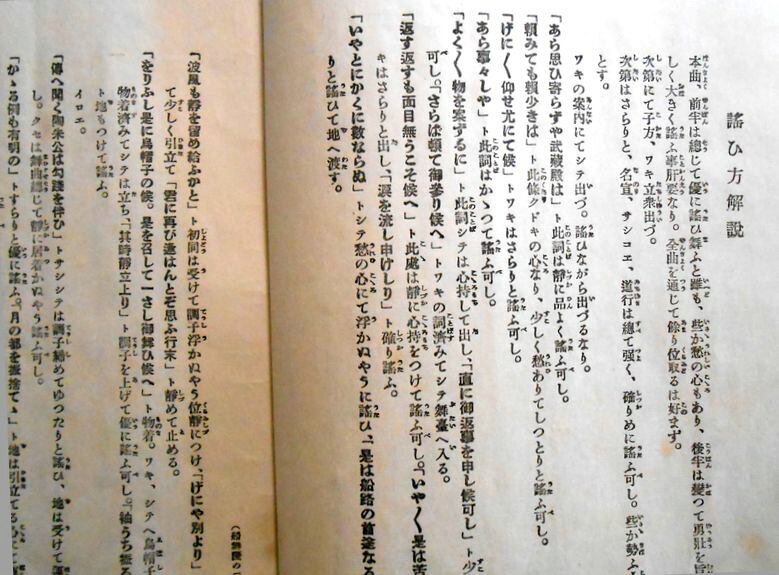 謠ひ方解説
本曲、前半は總じて優に謠ひ舞ふと雖も、些か愁の心もあり、後半は變つて勇壯を旨
しく大きく謠ふ事肝要なり。全曲を通じて餘り位取るは好まず。
次第にて子方、ワキ立衆出づ。
次第はさらりと、名宣、サシコエ、道行は總て强く、確りめに謠ふ可し。些か勢ふ
とす。
ワキの案内にてシテ出づ。謠ひながら出づるなり。
「あら思ひ寄らずや武藏殿は」ト此詞は靜に品よく謠ふ可し。
「頼みても頼少きは」ト此條クドキの心なり、少しく愁ありてしつとりと謠ふ可し。
「げに〱仰せ尤にて候」トワキはさらりと謠ふ可し。
「あら事々しや」ト此詞はかゝつて謠ふ可し。
「よく〱物を案ずるに」ト此詞シテは心持して出し、「直に御返事を申し候可し」ト少
可し。「さらば頓て御參り候へ」トワキの詞濟みてシテ舞臺へ入る。
「返す返すも面目無うこそ候へ」ト此處は靜に心持をつけて謠ふ可し。「いや〱是は苦
キはさらりと出し、「涙を流し申けしり」ト確り謠ふ。
「いやとにかくに數ならぬ」トシテ愁の心にて浮かぬやうに謠ひ、「是は船路の首途なる
りと謠ひて地へ渡す。
「波風も靜を留め給ふかと」ト初同は受けて調子浮かぬやう位靜につけ、「げにや別より」
て少しく引立て「君に再び逢はんとぞ思ふ行末」ト靜めて止める。
「をりふし是に烏帽子の候。是を召して一さし御舞ひ候へ」ト物着。ワキ、シテへ烏帽子
物着濟みてシテは立ち、「其時靜立上り」ト調子を上げて優に謠ふ可し。「袖うち振る
ト地もつけて謠ふ。
イロエ。
「傳へ聞く陶朱公は勾踐を伴ひ」トサシシテは調子締めてゆつたりと謠ひ、地は受けて
し。クセは舞曲總じて靜に居着かぬやう謠ふ可し。
「かゝる例も有明の」トすらりと優に謠ふ。「月の都を振捨てゝ」ト地は引立てる心に